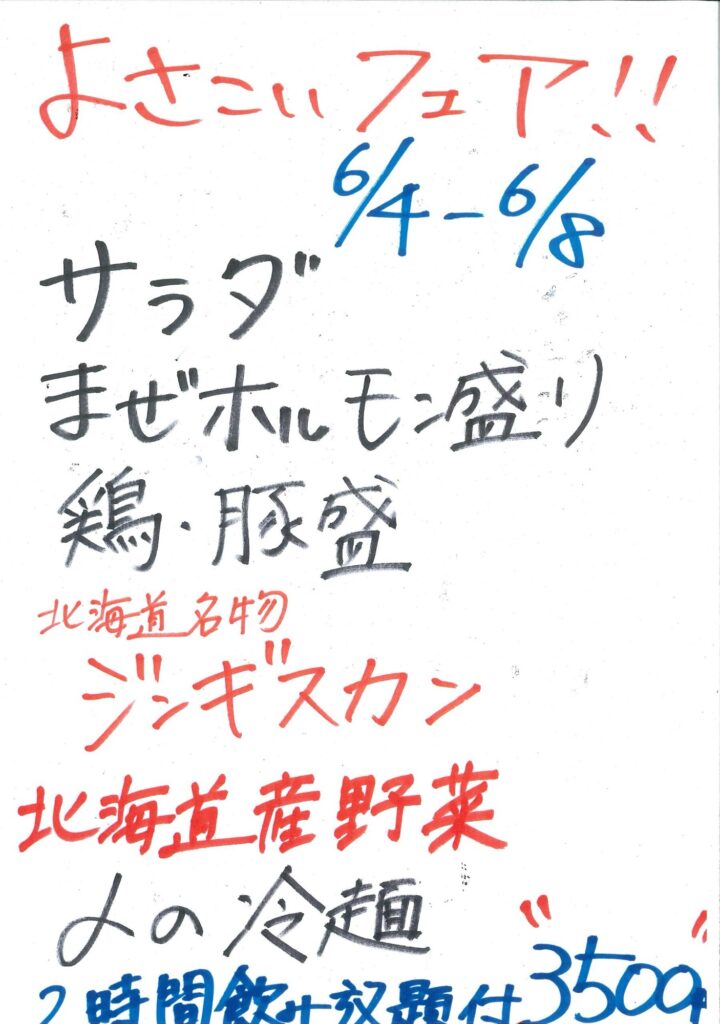 よさこいフェア!!
6/4-6/8
サラダ
まぜホルモン盛り
鶏・豚盛
北海道名物
ジンギスカン
北海道産野菜
〆の冷麺
2時間飲み放題付 "3500"